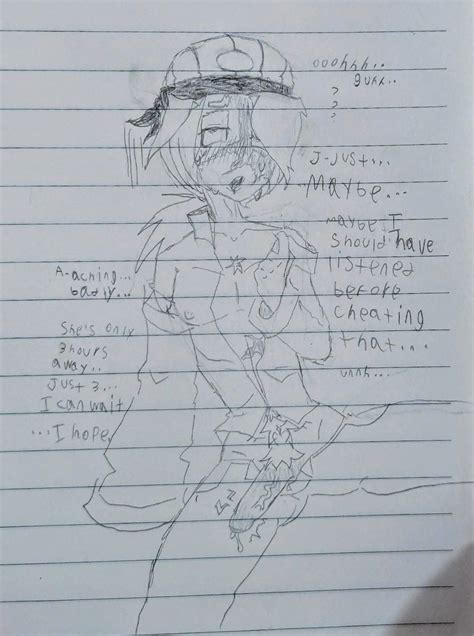 ooohhh..
guhh..
?
?
J-just...
Maybe...
maybe I
should have
listened
before
cheating
that...
unnh...
A-aching...
badly...
She's only
3 hours
away..
Just 3...
I can wait
...I hope